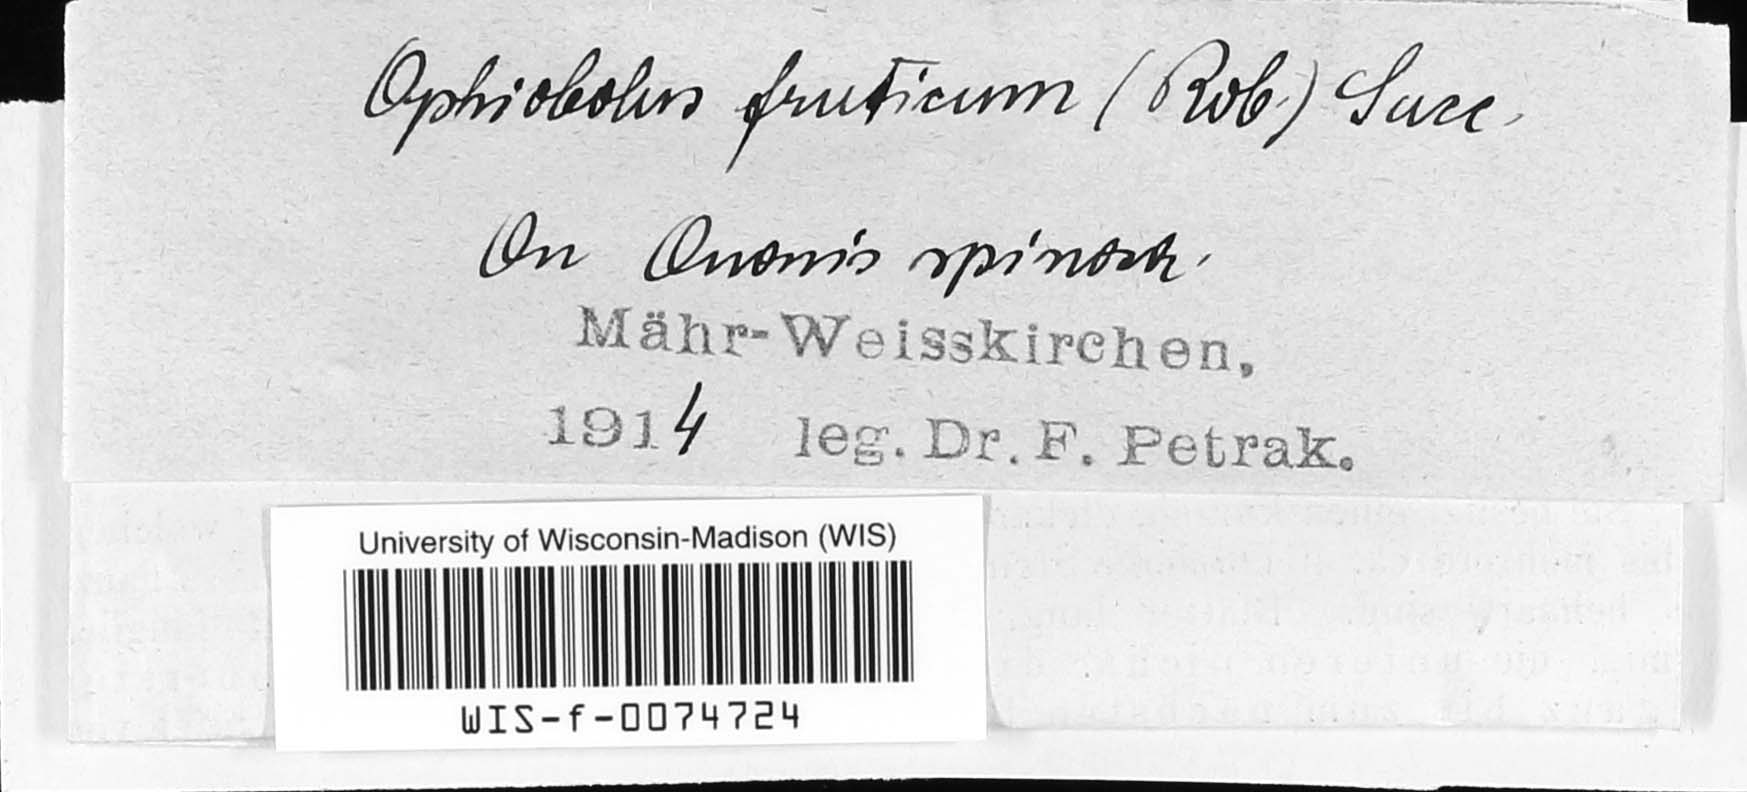 Ophiobolus fruticum (Rob.) Sacc.
On Ononis spinosa.
Mähr-Weisskirchen,
1914 leg. Dr. F. Petrak.
University of Wisconsin-Madison (WIS)
WIS-f-0074724